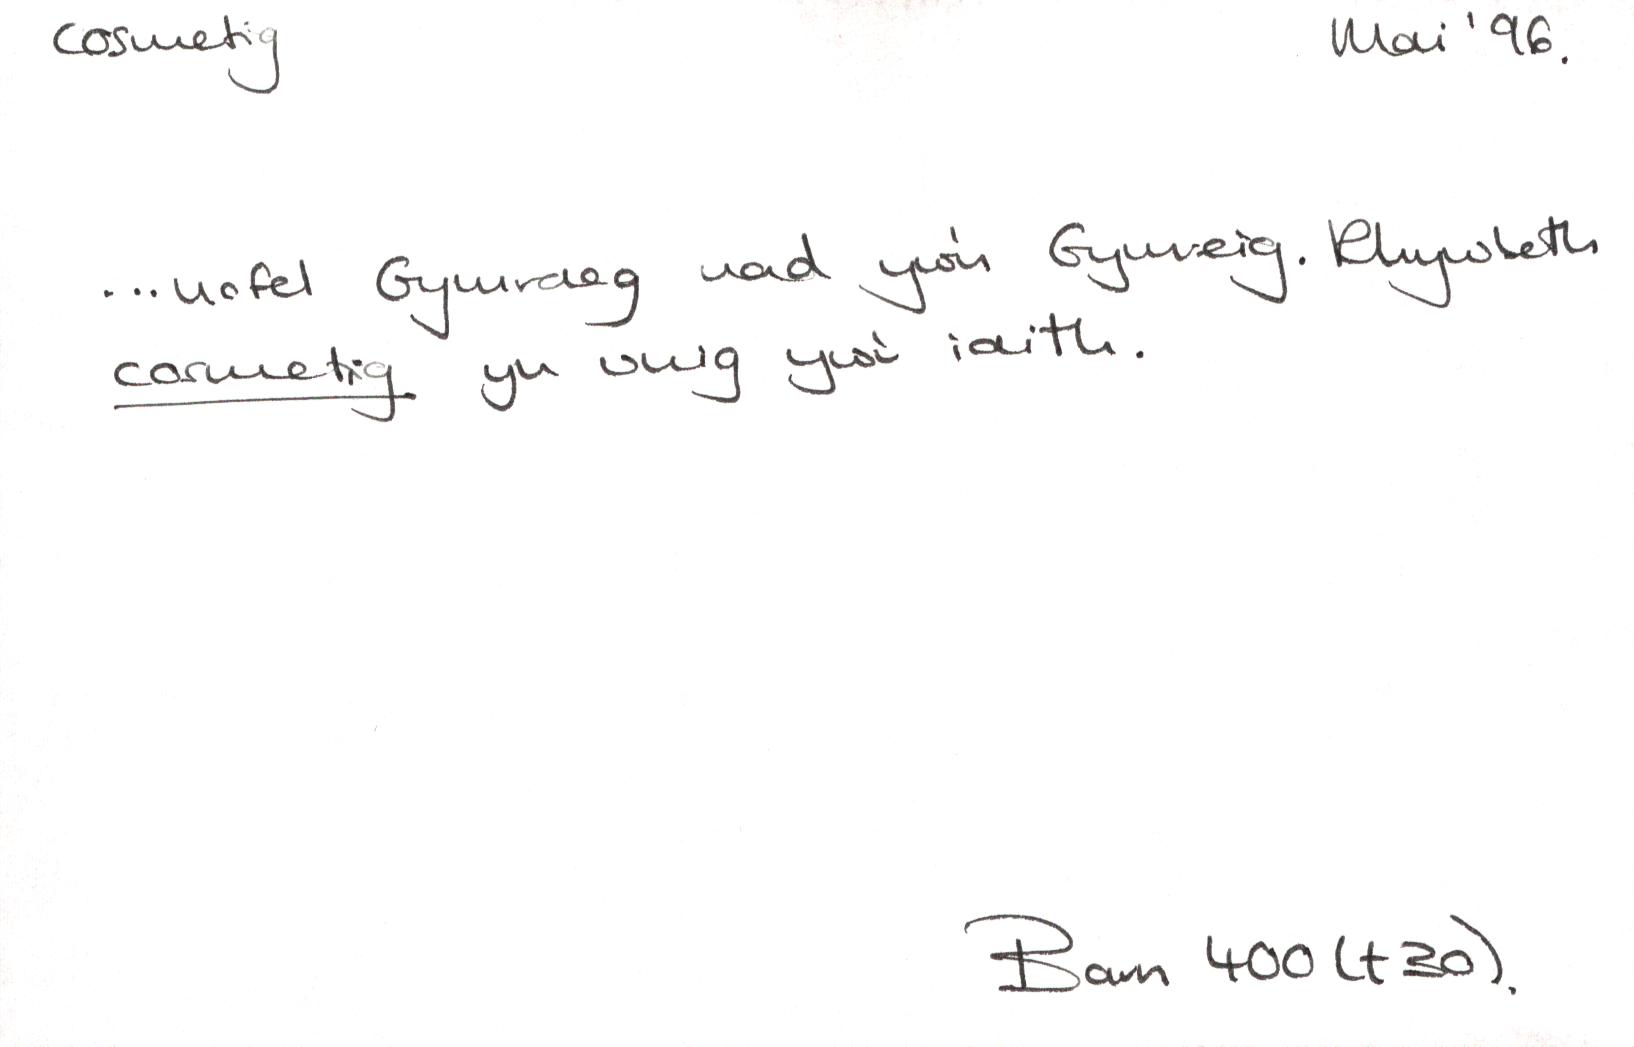 cosmetig
Mai '96.
...nofel Gymraeg nad yw'n Gymreig. Rhywbeth
cosmetig yn unig yw'i iaith.
Barn 400 (t 30).